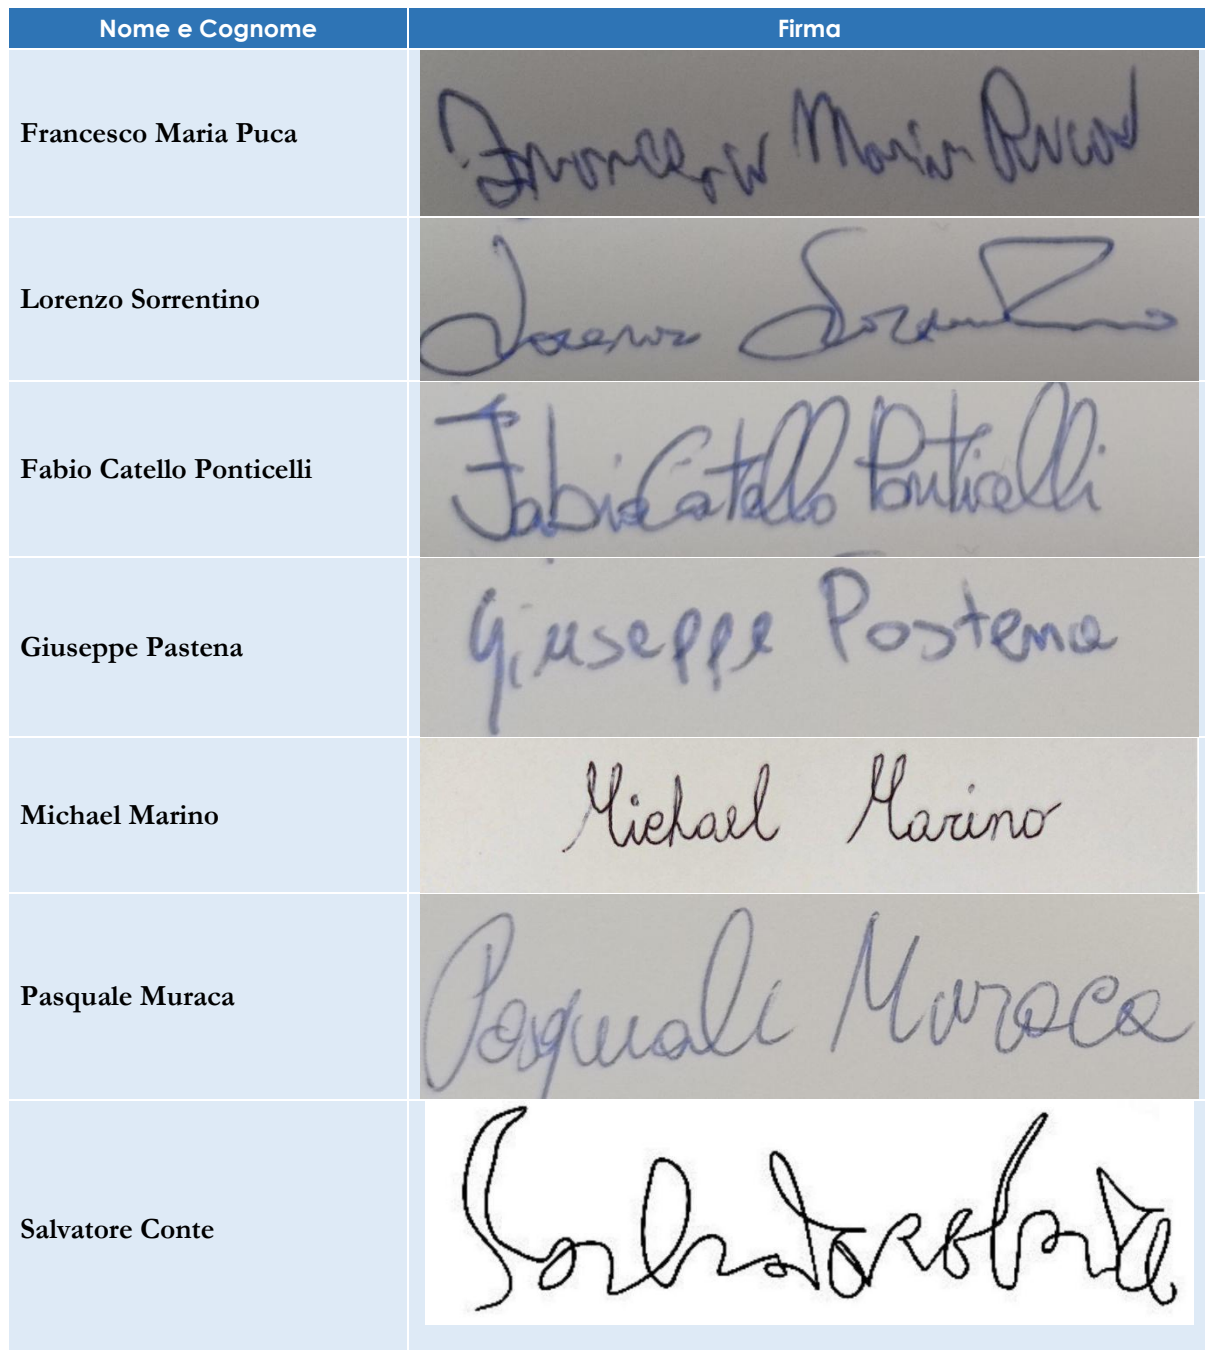 Nome e Cognome Firma
Francesco Maria Puca Francesco Maria Puca
Lorenzo Sorrentino Lorenzo Sorrentino
Fabio Catello Ponticelli Fabio Catello Ponticelli
Giuseppe Pastena Giuseppe Pastena
Michael Marino Michael Marino
Pasquale Muraca Pasquale Muraca
Salvatore Conte Salvatore Conte